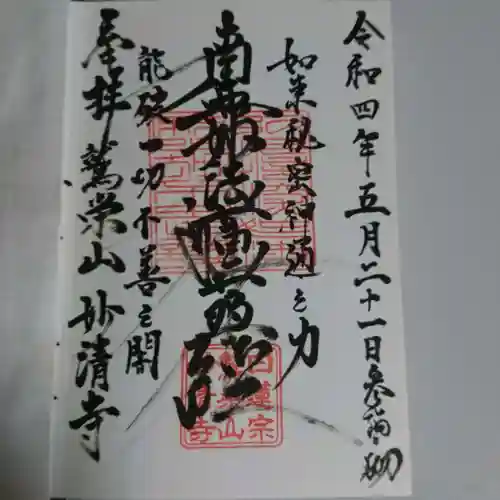 令和四年五月二十一日参詣砌
如来秘密神通之力
南無妙法蓮華経
能破一切不善之闇
奉拝 鷲栄山 妙清寺
日蓮宗